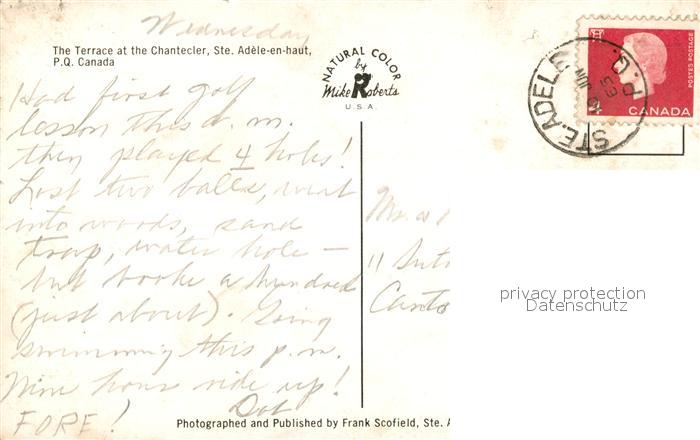 Wednesday
The Terrace at the Chantecler, Ste. Adèle-en-haut,
P.Q. Canada
Had first golf
lesson this a.m.
then played 4 holes!
Lost two balls, went
into woods, sand
trap, water hole —
but broke a hundred
(just about). Going
swimming this p.m.
Nine hour ride up!
Dot
FORE!
NATURAL COLOR
by
Mike Roberts
U.S.A.
STE. ADELE
P.Q.
JUN
63
CANADA
POSTES POSTAGE
4
Mr. &
11
Canto
privacy protection
Datenschutz
Photographed and Published by Frank Scofield, Ste. A